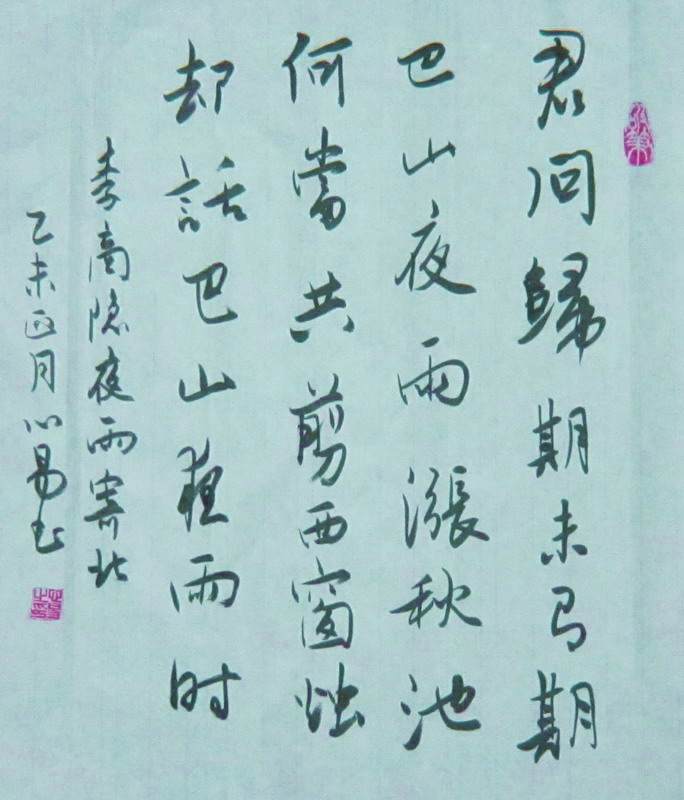 君问歸期未有期
巴山夜雨漲秋池
何當共剪西窗烛
却話巴山夜雨时
李商隐夜雨寄北
乙未正月心易书